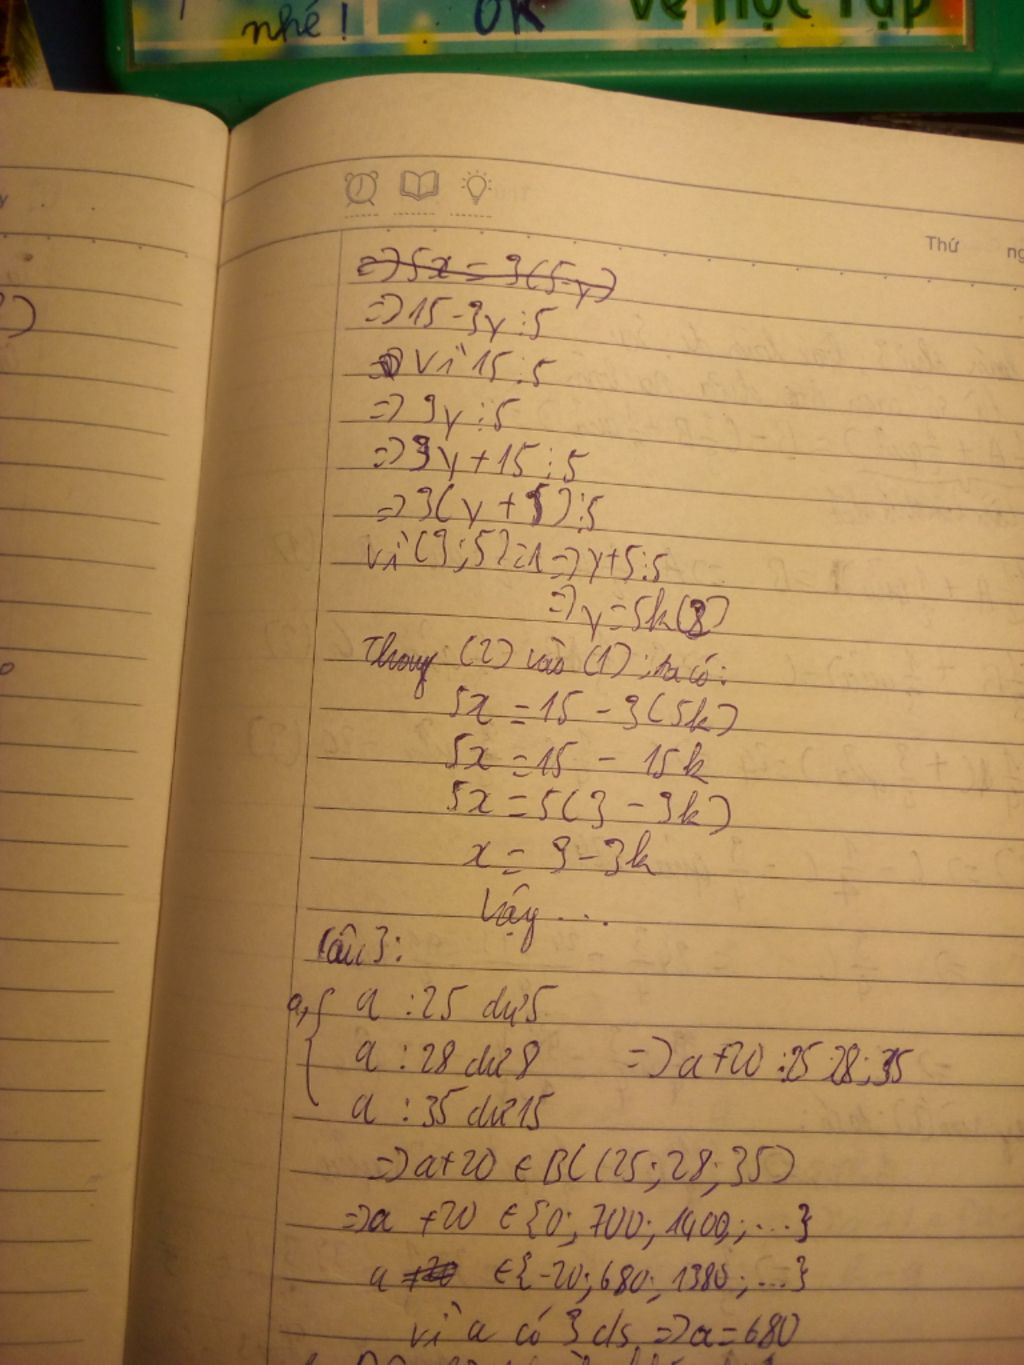 nhé! OK Về Học Tập
Thứ ng
=> 5x = 3(5-y)
=> 15 - 3y ⋮ 5
Vì 15 ⋮ 5
=> 3y ⋮ 5
=> 3y + 15 ⋮ 5
=> 3(y + 5) ⋮ 5
Vì (3; 5) = 1 => y + 5 ⋮ 5
=> y = 5k (2)
Thay (2) vào (1); ta có:
5x = 15 - 3(5k)
5x = 15 - 15k
5x = 5(3 - 3k)
x = 3 - 3k
Vậy ...
Câu 3:
a, { a : 25 dư 5
a : 28 dư 8 => a + 20 ⋮ 25; 28; 35 =>
a : 35 dư 15
=> a + 20 ∈ BC (25; 28; 35)
=> a + 20 ∈ {0; 700; 1400; ...}
a +20 ∈ {-20; 680; 1380; ...}
vì a có 3 cs => a = 680